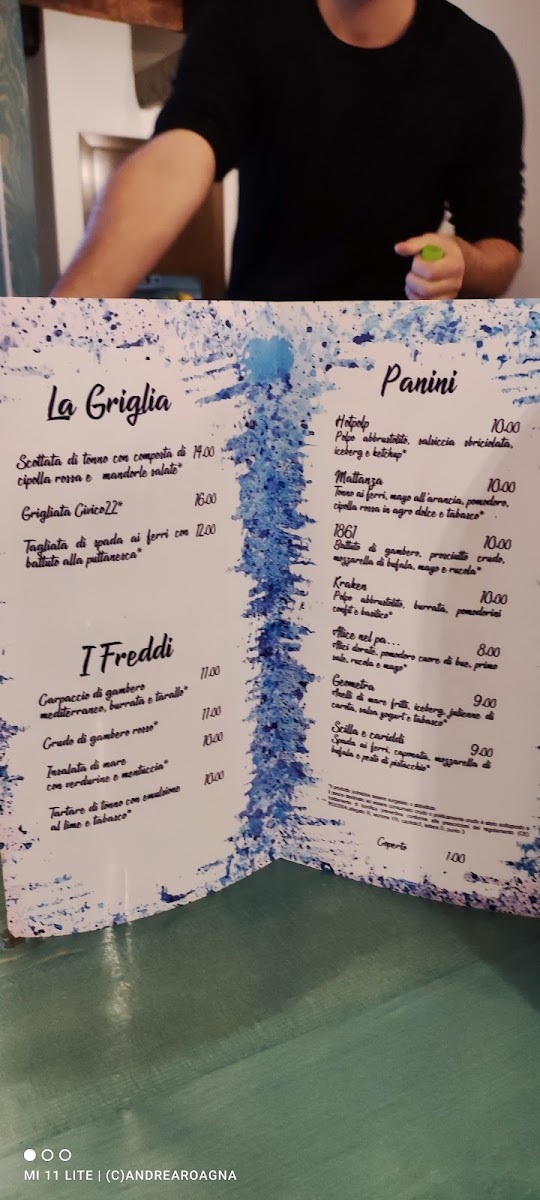 La Griglia
Scottata di tonno con composta di 14.00
cipolla rossa e mandorle salate*
Grigliata Civico22* 16.00
Tagliata di spada ai ferri con 12.00
battuto alla puttanesca*
I Freddi
Carpaccio di gambero 11.00
mediterraneo, burrata e tarallo*
Crudo di gambero rosso* 11.00
Insalata di mare 10.00
con verdurine e mentuccia*
Tartare di tonno con emulsione 10.00
al lime e tabasco*
Panini
Hotpolp 10.00
Polpo abbrustolito, salsiccia sbriciolata,
iceberg e ketchup*
Mattanza 10.00
Tonno ai ferri, mayo all'arancia, pomodoro,
cipolla rossa in agro dolce e tabasco*
1861 10.00
Battuto di gambero, prosciutto crudo,
mozzarella di bufala, mayo e rucola*
Kraken 10.00
Polpo abbrustolito, burrata, pomodorini
confit e basilico*
Alice nel pa... 8.00
Alici dorate, pomodoro cuore di bue, primo
sale, rucola e mayo*
Geometra 9.00
Anelli di mare fritti, iceberg, julienne di
carota, salsa yogurt e tabasco*
Scilla e cariddi 9.00
Spada ai ferri, caponata, mozzarella di
bufala e pesto di pistacchio*
Coperto 1.00
MI 11 LITE | (C)ANDREAROAGNA